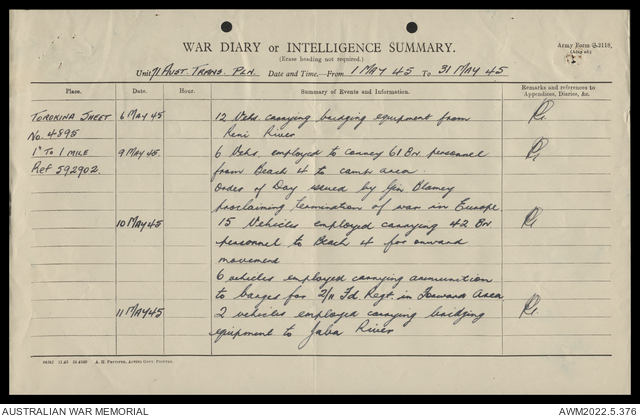 WAR DIARY or INTELLIGENCE SUMMARY.
(Erase heading not required.)
Army Form
Unit 71 AUST TRANS. PLN. Date and Time.—From 1 MAY 45 To 31 MAY 45
Place. Date. Hour. Summary of Events and Information. Remarks and references to Appendices, Diaries, &c.
TOROKINA SHEET 6 MAY 45 12 Vehs. carrying bridging equipment from
No. 4895 Reni River
1" TO 1 MILE 9 MAY 45. 6 Vehs. employed to convey 61 Bn personnel
Ref 592902. from Beach 4 to camp area.
Order of Day issued by Gen Blamey
proclaiming termination of war in Europe
10 MAY 45 15 Vehicles employed carrying 42 Bn
personnel to Beach 4 for onward
movement
6 vehicles employed carrying ammunition
to barges for 2/11 Fd. Regt. in Forward Area
11 MAY 45 2 vehicles employed carrying bridging
equipment to Jaba River
AUSTRALIAN WAR MEMORIAL AWM2022.5.376